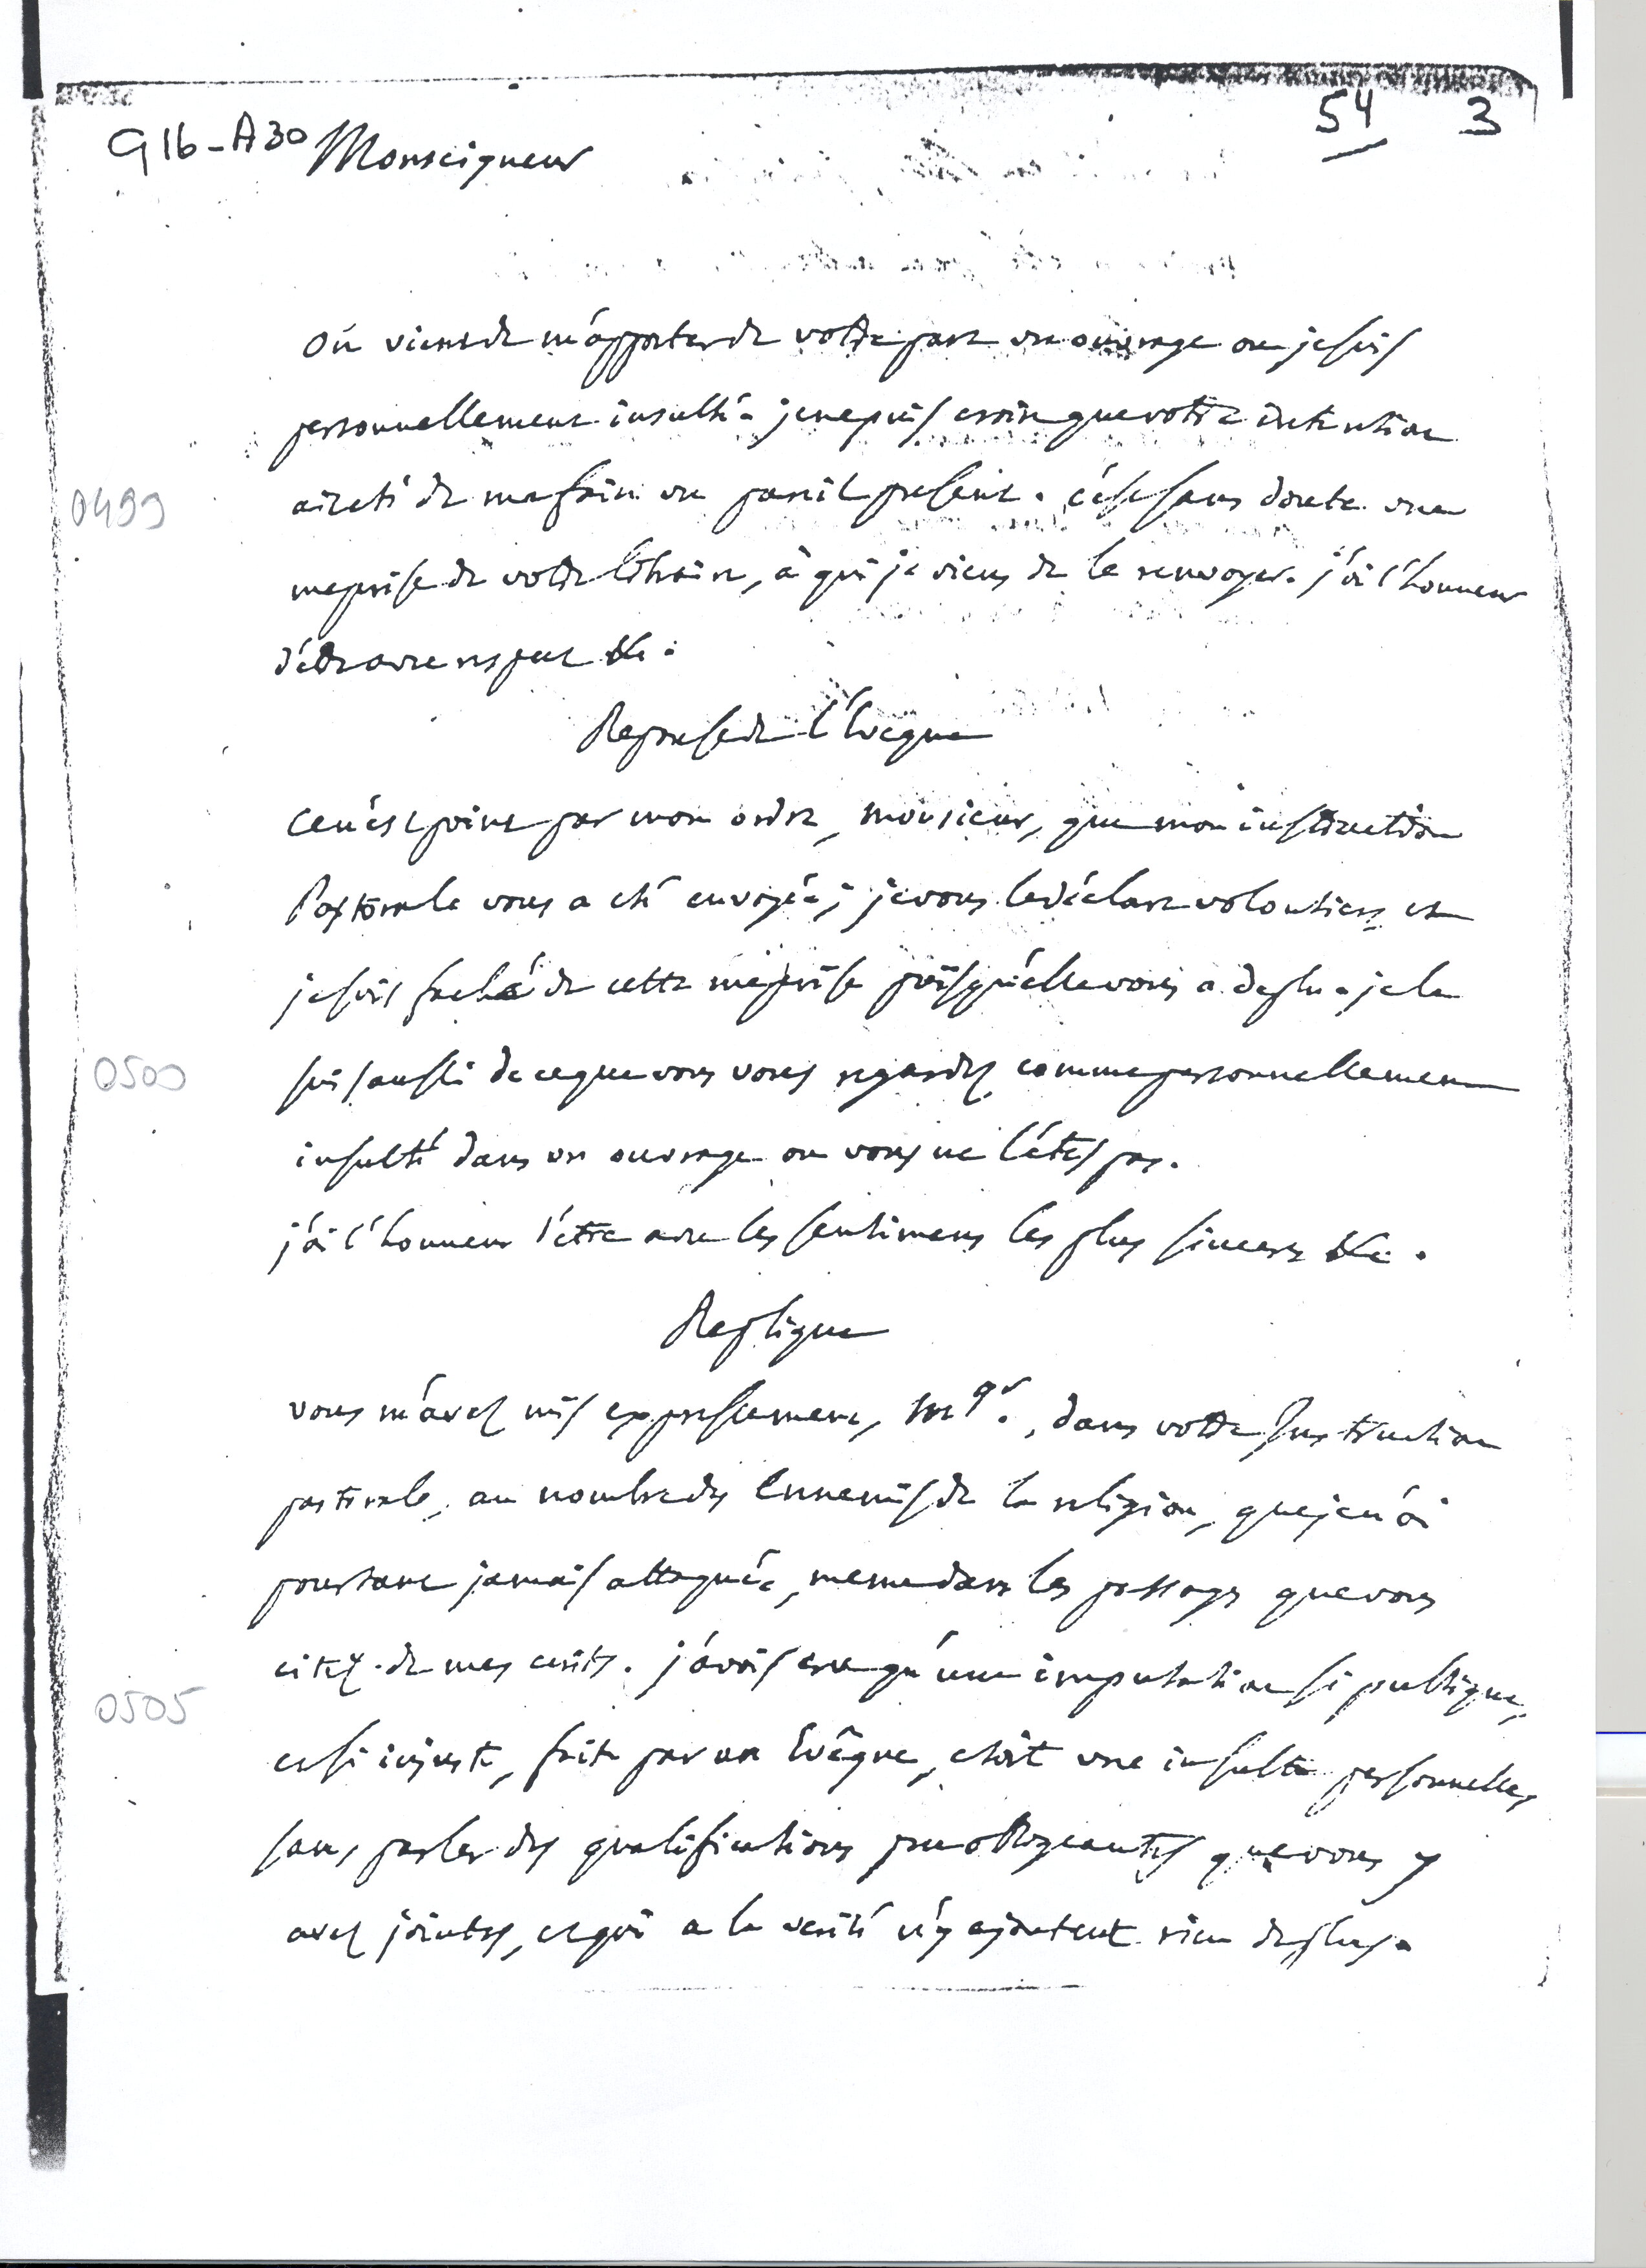 54 3
G16-A30 Monseigneur
On vient de m'apporter de votre part un ouvrage ou je suis
personnellement insulté. je ne puis croire que votre intention
0499
ait eté de me faire un pareil present. c'est sans doute une
meprise de votre libraire, à qui je viens de le renvoyer. j'ai l'honneur
d'être avec respect &c.
Reponse de l'Evêque
Ce n'est point par mon ordre, monsieur, que mon instruction
Pastorale vous a eté envoyée; je vous le déclare volontiers et
je suis faché de cette meprise puisqu'elle vous a deplu. je le
0500
suis aussi de ce que vous vous regardez comme personnellement
insulté dans un ouvrage ou vous ne l'êtes pas.
j'ai l'honneur d'être avec les sentimens les plus sinceres &c.
Replique
vous m'avez mis expressement, Mgr., dans votre Instruction
pastorale, au nombre des Ennemis de la religion, que je n'ai
pourtant jamais attaquée, meme dans les passages que vous
citez de mes ecrits. j'avois cru qu'une imputation si publique,
0505
et si injuste, faite par un Evêque, etoit une insulte personnelle,
sans parler des qualifications peu obligeantes que vous y
avez jointes, et qui a la verité n'y ajoutent rien de plus.